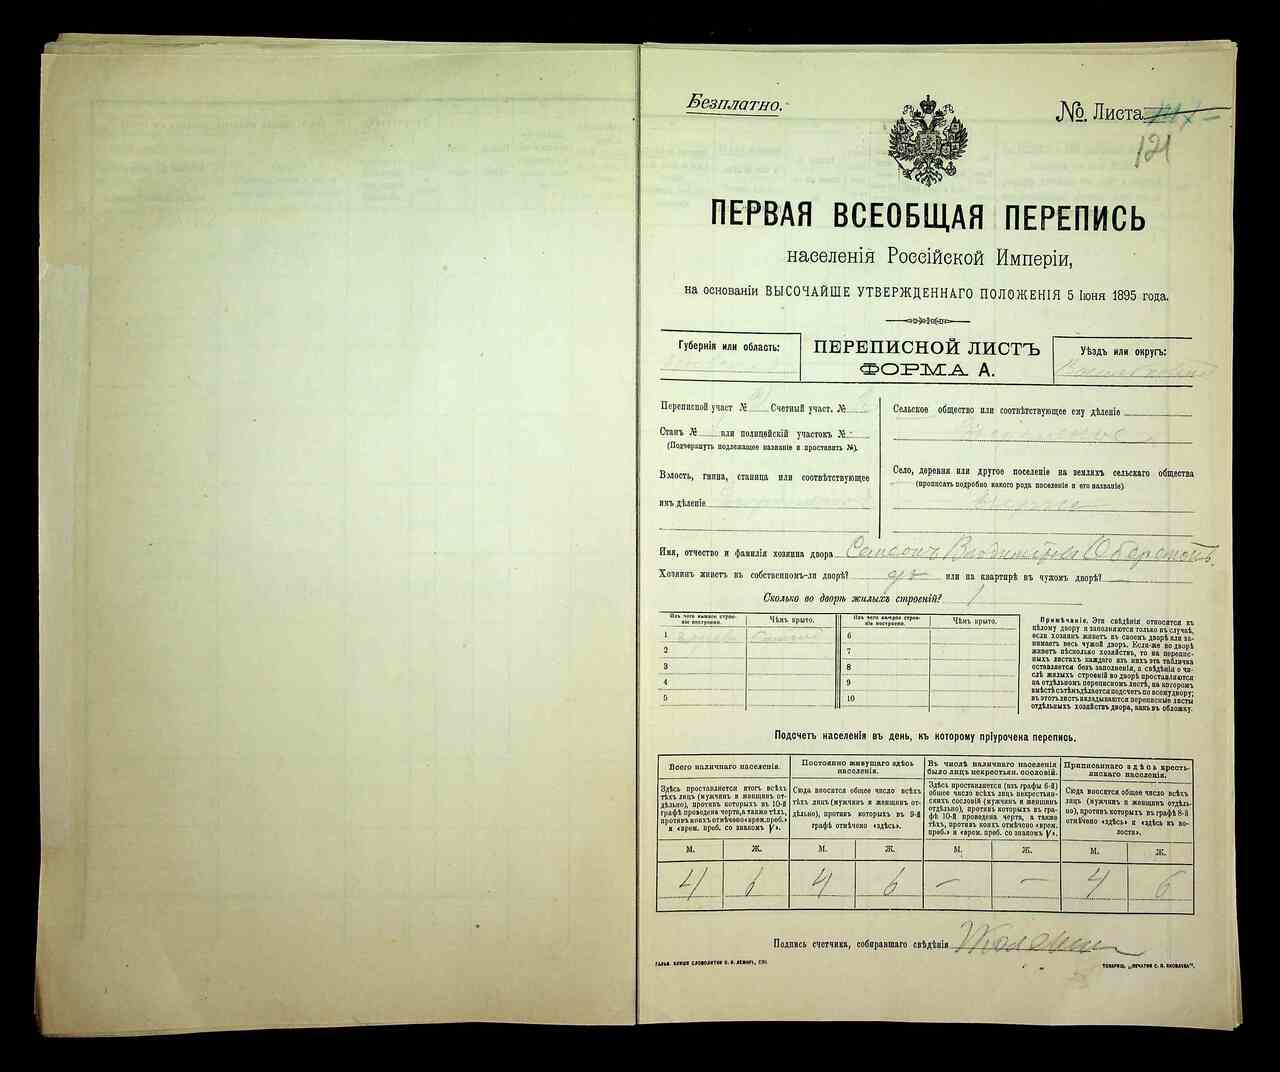 Безплатно.
№ Листа
121
ПЕРВАЯ ВСЕОБЩАЯ ПЕРЕПИСЬ
населенія Россійской Имперіи,
на основаніи ВЫСОЧАЙШЕ УТВЕРЖДЕННАГО ПОЛОЖЕНІЯ 5 Іюня 1895 года.
Губернія или область:
ПЕРЕПИСНОЙ ЛИСТЪ
ФОРМА А.
Уѣздъ или округъ:
Переписной участ № Счетный участ. №
Станъ № или полицейскій участокъ №
(Подчеркнуть подлежащее названіе и проставить №).
Волость, гмина, станица или соотвѣтствующее
имъ дѣленіе
Сельское общество или соотвѣтствующее ему дѣленіе
Село, деревня или другое поселеніе на земляхъ сельскаго общества
(прописать подробно какого рода поселеніе и его названіе)
Имя, отчество и фамилія хозяина двора Самсонъ
Хозяинъ живетъ въ собственномъ-ли дворѣ? да или на квартирѣ въ чужомъ дворѣ?
Сколько во дворѣ жилыхъ строеній? 1
Изъ чего каждое строеніе построено.
Чѣмъ крыто.
Изъ чего каждое строеніе построено.
Чѣмъ крыто.
1 6
2 7
3 8
4 9
5 10
Примѣчаніе. Эти свѣдѣнія относятся къ
цѣлому двору и заполняются только въ случаѣ,
если хозяинъ живетъ въ своемъ дворѣ или за-
нимаетъ весь чужой дворъ. Если-же во дворѣ
живетъ нѣсколько хозяйствъ, то на перепис-
ныхъ листахъ каждаго изъ нихъ эта табличка
оставляется безъ заполненія, а свѣдѣнія о чи-
слѣ жилыхъ строеній во дворѣ проставляются
на отдѣльномъ переписномъ листѣ, на которомъ
вмѣстѣ съ тѣмъ дѣлается подсчетъ по всему двору;
въ этотъ листъ вкладываются переписные листы
отдѣльныхъ хозяйствъ двора, какъ въ обложку.
Подсчетъ населенія въ день, къ которому пріурочена перепись.
Всего наличнаго населенія.
Здѣсь проставляется итогъ всѣхъ
тѣхъ лицъ (мужчинъ и женщинъ от-
дѣльно), противъ которыхъ въ 10-й
графѣ проведена черта, а также тѣхъ,
противъ коихъ отмѣчено «врем. преб.»
и «врем. преб. со знакомъ V».
Постоянно живущаго здѣсь
населенія.
Сюда вносятся общее число всѣхъ
тѣхъ лицъ (мужчинъ и женщинъ от-
дѣльно), противъ которыхъ въ 9-й
графѣ отмѣчено «здѣсь».
Въ числѣ наличнаго населенія
было лицъ некрестьян. сословій.
Здѣсь проставляется (изъ графы 6-й)
общее число всѣхъ лицъ некрестьян-
скихъ сословій (мужчинъ и женщинъ
отдѣльно), противъ которыхъ въ гра-
фѣ 10-й проведена черта, а также
тѣхъ, противъ коихъ отмѣчено «врем.
преб.» и «врем. преб. со знакомъ V».
Приписаннаго здѣсь кресть-
янскаго населенія.
Сюда вносятся общее число всѣхъ
лицъ (мужчинъ и женщинъ отдѣль-
но), противъ которыхъ въ графѣ 8-й
отмѣчено «здѣсь» и «здѣсь въ во-
лости».
М. Ж. М. Ж. М. Ж. М. Ж.
4 6 4 6 — — 4 6
Подпись счетчика, собиравшаго свѣдѣнія